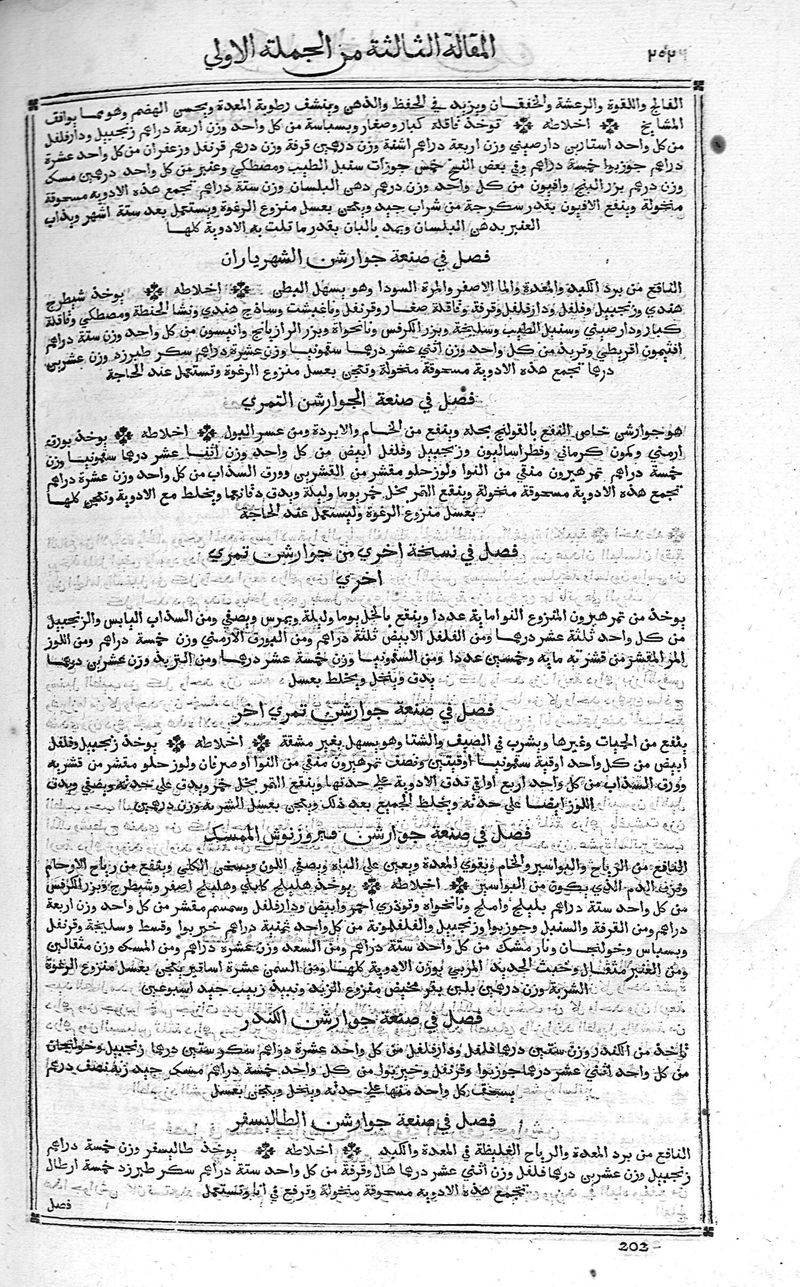 ٢٠٢
المقالة الثالثة من الجملة الاولي
الفالج واللقوة والرعشة والخفقان ويزيد في الحفظ والذهن وينشف رطوبة المعدة ويحسن الهضم وهو مما يوافق
المشايخ ❊ اخلاطه ❊ توخذ قاقلة كبار وصغار وبسباسة من كل واحد وزن اربعة دراهم زنجبيل ودارفلفل
من كل واحد استارين دارصيني وزن اربعة دراهم اشنة وزن درهمين قرفة وزن درهم قرنفل وزعفران من كل واحد عشرة
دراهم جوزبوا خمسة دراهم وفي بعض النسخ خمس جوزات سنبل الطيب ومصطكي وعنبر من كل واحد درهمين مسك
وزن درهم بزر البنج وافيون من كل واحد وزن درهم دهن البلسان وزن ستة دراهم تجمع هذه الادوية مسحوقة
منخولة وينقع الافيون بقدر سكرجة من شراب جيد ويعجن بعسل منزوع الرغوة ويستعمل بعد ستة اشهر ويذاب
العنبر بدهن البلسان ويمد بالبان بقدر ما تلت به الادوية كلها
فصل في صنعة جوارشن الشهرياران
النافع من برد الكبد والمعدة والما الاصفر والمرة السودا وهو يسهل البطن ❊ اخلاطه ❊ يوخذ شيطرج
هندي وزنجبيل وفلفل ودارفلفل وقرفة وقاقلة صغار وقرنفل ونافيشت وساذج هندي ونشا الحنطة ومصطكي وقاقلة
كبار ودارصيني وسنبل الطيب وسليخة وبزر الكرفس ونانخواة وبزر الرازيانج وانيسون من كل واحد وزن ستة دراهم
افثيمون اقريطي وتربد من كل واحد وزن اثني عشر درهما سقمونيا وزن عشرة دراهم سكر طبرزد وزن عشرين
درهما تجمع هذه الادوية مسحوقة منخولة وتعجن بعسل منزوع الرغوة وتستعمل عند الحاجة
فصل في صنعة الجوارشن التمري
هو جوارشن خاص النفع بالقولنج يحله وينفع من الخام والابردة ومن عسر البول ❊ اخلاطه ❊ يوخذ بورق
ارمني وكمون كرماني وفطراساليون وزنجبيل وفلفل ابيض من كل واحد وزن اثنا عشر درهما سقمونيا وزن
خمسة دراهم تمر هيرون منقي من النوا ولوز حلو مقشر من القشرين وورق السذاب من كل واحد وزن عشرة دراهم
تجمع هذه الادوية مسحوقة منخولة وينقع التمر بخل خمر يوما وليلة ويدق دقا ناعما ويخلط مع الادوية وتعجن كلها
بعسل منزوع الرغوة وليستعمل عند الحاجة
فصل في نسخة اخري من جوارشن تمري
اخري
يوخذ من تمر هيرون المنزوع النوا ماية عددا وينقع بالخل يوما وليلة ويمرس ويصفي ومن السذاب اليابس والزنجبيل
من كل واحد ثلثة عشر درهما ومن الفلفل الابيض ثلثة دراهم ومن البورق الارمني وزن خمسة دراهم ومن اللوز
المر المقشر من قشرته ماية وخمسين عددا ومن السقمونيا وزن خمسة عشر درهما ومن التربد وزن عشرين درهما
يدق وينخل ويخلط بعسل
فصل في صنعة جوارشن تمري اخر
ينفع من الحميات وغيرها ويشرب في الصيف والشتا وهو يسهل بغير مشقة ❊ اخلاطه ❊ يوخذ زنجبيل وفلفل
ابيض من كل واحد اوقية سقمونيا اوقيتين ونصف تمر هيرون منقي من النوا او صرفان ولوز حلو مقشر من قشريه
وورق السذاب من كل واحد اربع اواقي تدق الادوية علي حدتها وينقع التمر بخل خمر ويدق علي حدته ويصفي ويدق
اللوز ايضا علي حدته ويخلط الجميع بعد ذلك ويعجن بعسل الشربة وزن درهمين
فصل في صنعة جوارشن فيروزنوش الممسك
النافع من الرياح والبواسير والخام ويقوي المعدة ويعين علي الباه ويصفي اللون ويسخن الكلي وينفع من رياح الارحام
ونزف الدم الذي يكون من البواسير ❊ اخلاطه ❊ يوخذ هليلج كابلي وهليلج اصفر وشيطرج وبزر الكرفس
من كل واحد ستة دراهم بليلج واملج ونانخواه وتودري احمر وابيض ودارفلفل وسمسم مقشر من كل واحد وزن اربعة
دراهم ومن القرفة والسنبل وجوزبوا وزنجبيل والفلفلمونة من كل واحد ثمنية دراهم خيربوا وقسط وسليخة وقرنفل
وبسباس وخولنجان ونارمشك من كل واحد ستة دراهم ومن السعد وزن عشرة دراهم ومن المسك وزن مثقالين
ومن العنبر مثقال وخبث الحديد المربي بوزن الادوية كلها ومن السمن عشرة اساتير يعجن بعسل منزوع الرغوة
الشربة وزن درهمين بلبن بقر مخيض منزوع الزبد ونبيذ زبيب جيد اسبوعين
فصل في صنعة جوارشن الكندر
تاخذ من الكندر وزن ستين درهما فلفل ودارفلفل من كل واحد عشرة دراهم سكر ستين درهما زنجبيل وخولنجان
من كل واحد اثني عشر درهما جوزبوا وقرنفل وخيربوا من كل واحد خمسة دراهم مسك جيد زنة نصف درهم
يسحق كل واحد منها علي حدته وينخل ويعجن بعسل
فصل في صنعة جوارشن الطاليسفر
النافع من برد المعدة والرياح الغليظة في المعدة والكبد ❊ اخلاطه ❊ يوخذ طاليسفر وزن خمسة دراهم
زنجبيل وزن عشرين درهما فلفل وزن اثني عشر درهما هال وقرفة من كل واحد ستة دراهم سكر طبرزد خمسة ارطال
تجمع هذه الادوية مسحوقة منخولة وترفع في انا وتستعمل
فصل
202